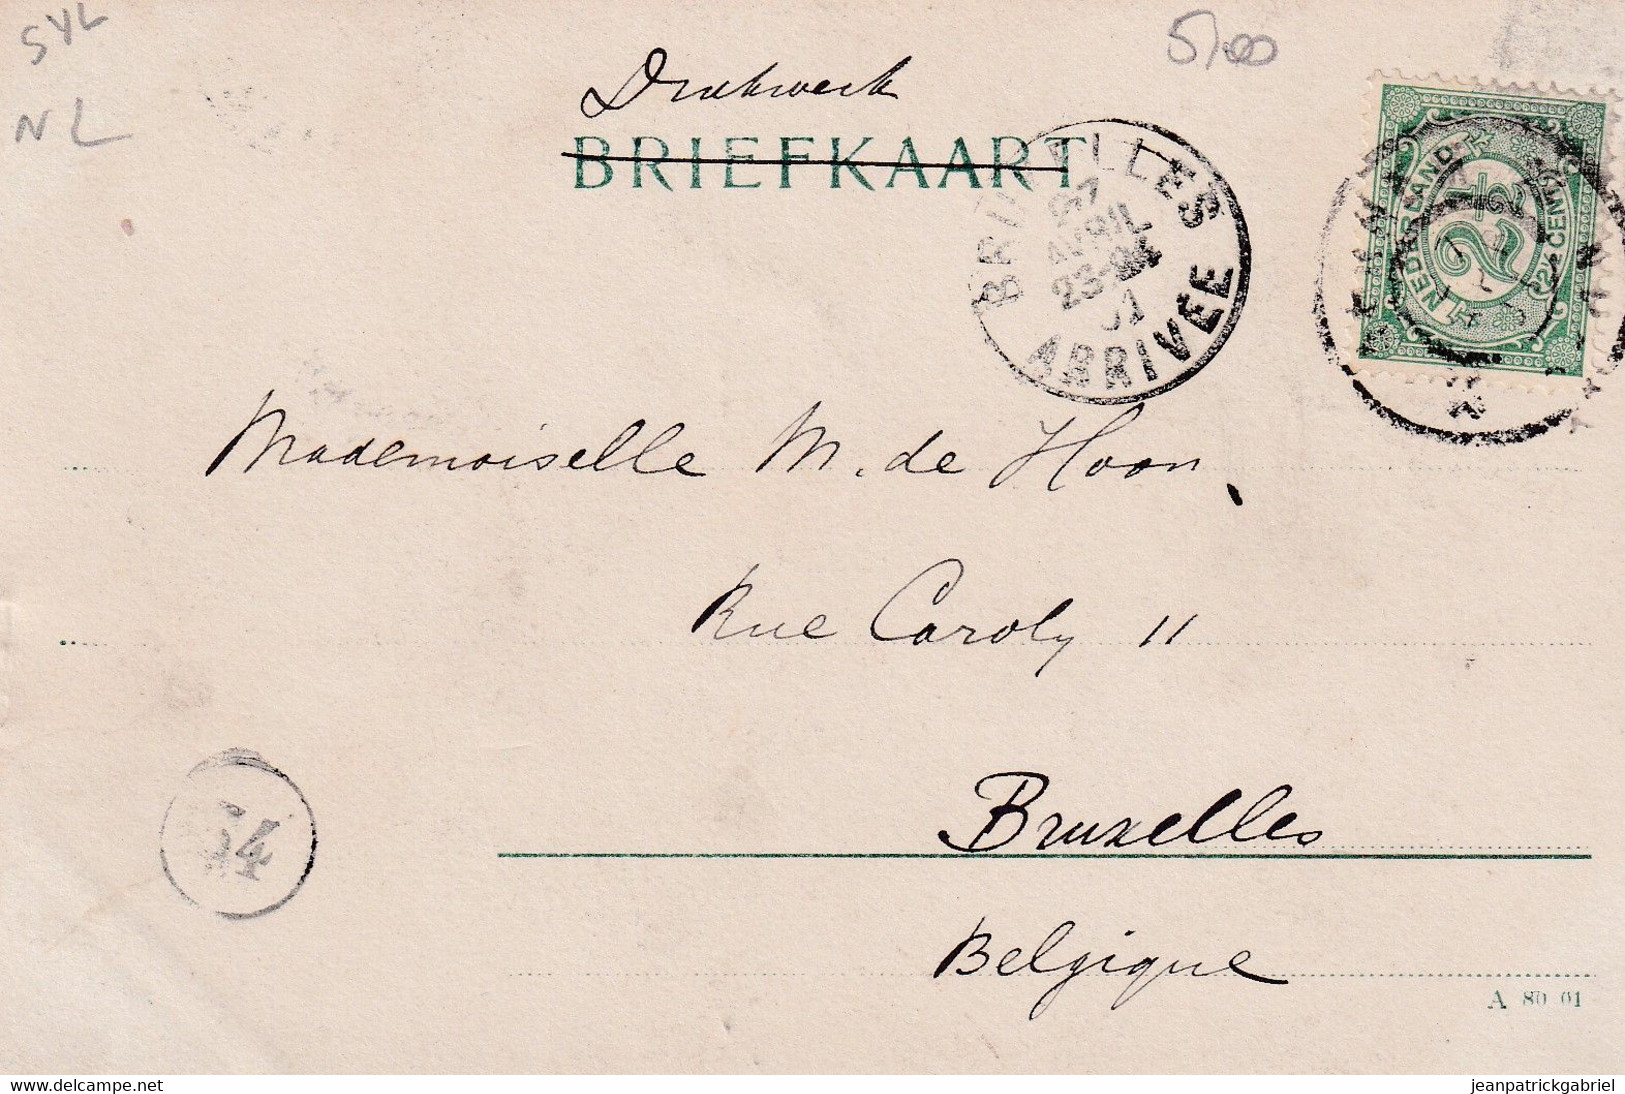 SYL
NL
5,00
Drukwerk
BRIEFKAART
BRUXELLES
AVRIL
ARRIVEE
NEDERLAND
2½
2½ CENT
Mademoiselle M. de Hoon,
Rue Caroly 11
54
Bruxelles
Belgique
A 80 01
www.delcampe.net
jeanpatrickgabriel